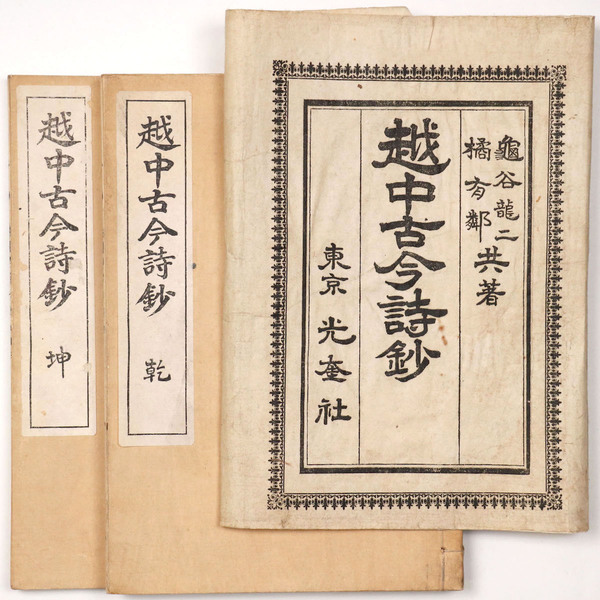 龜谷龍二
橘有鄰
共著
越中古今詩鈔
東京 光奎社
越中古今詩鈔 乾
越中古今詩鈔 坤